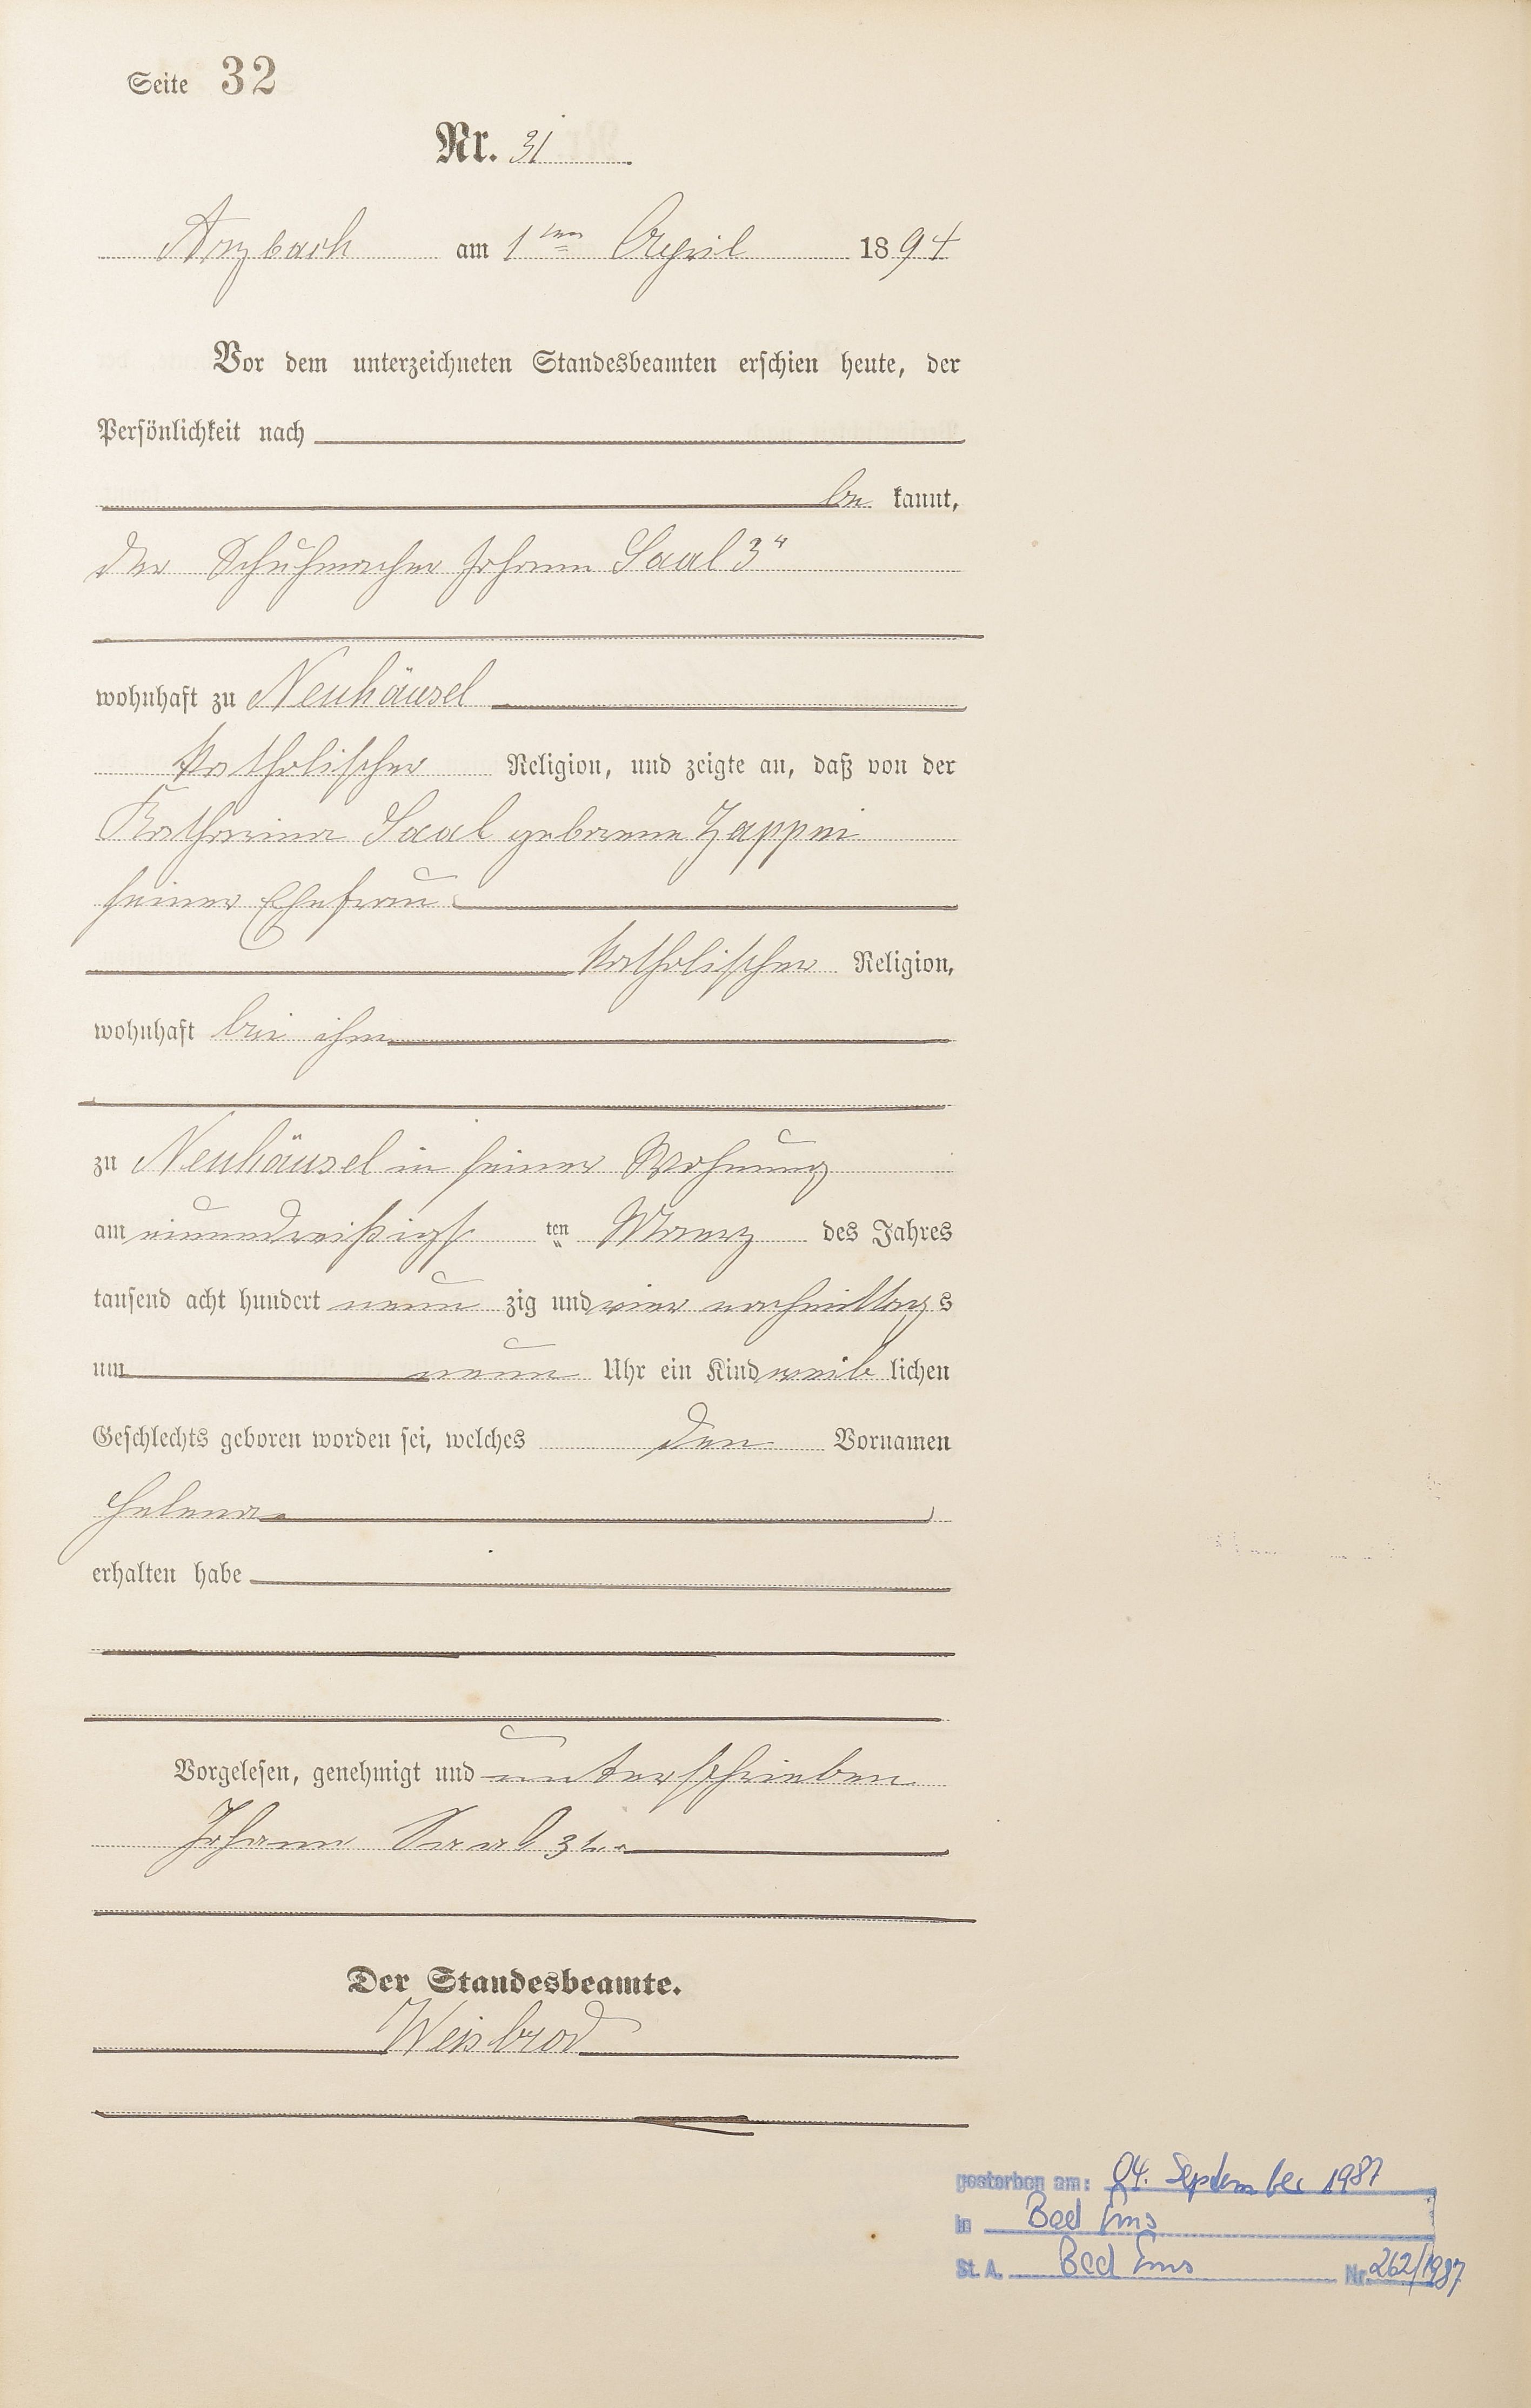 Seite 32
Nr. 31
Arzbach am 1ten April 1894
Vor dem unterzeichneten Standesbeamten erschien heute, der
Persönlichkeit nach
be kannt,
der Schuhmacher Johann Saal 3"
wohnhaft zu Neuhäusel
katholischer Religion, und zeigte an, daß von der
Katharina Saal geborene Zappei
seiner Ehefrau
katholischer Religion,
wohnhaft bei ihm
zu Neuhäusel in seiner Wohnung
am einunddreißigs ten Maerz des Jahres
tausend acht hundert neun zig und vier nachmittags
um neun Uhr ein Kind weib lichen
Geschlechts geboren worden sei, welches den Vornamen
Helena
erhalten habe
Vorgelesen, genehmigt und unterschrieben
Johann Saal 3t.
Der Standesbeamte.
Weisbrod
gestorben am: 04. September 1987
in Bad Ems
St. A. Bad Ems Nr. 262/1987